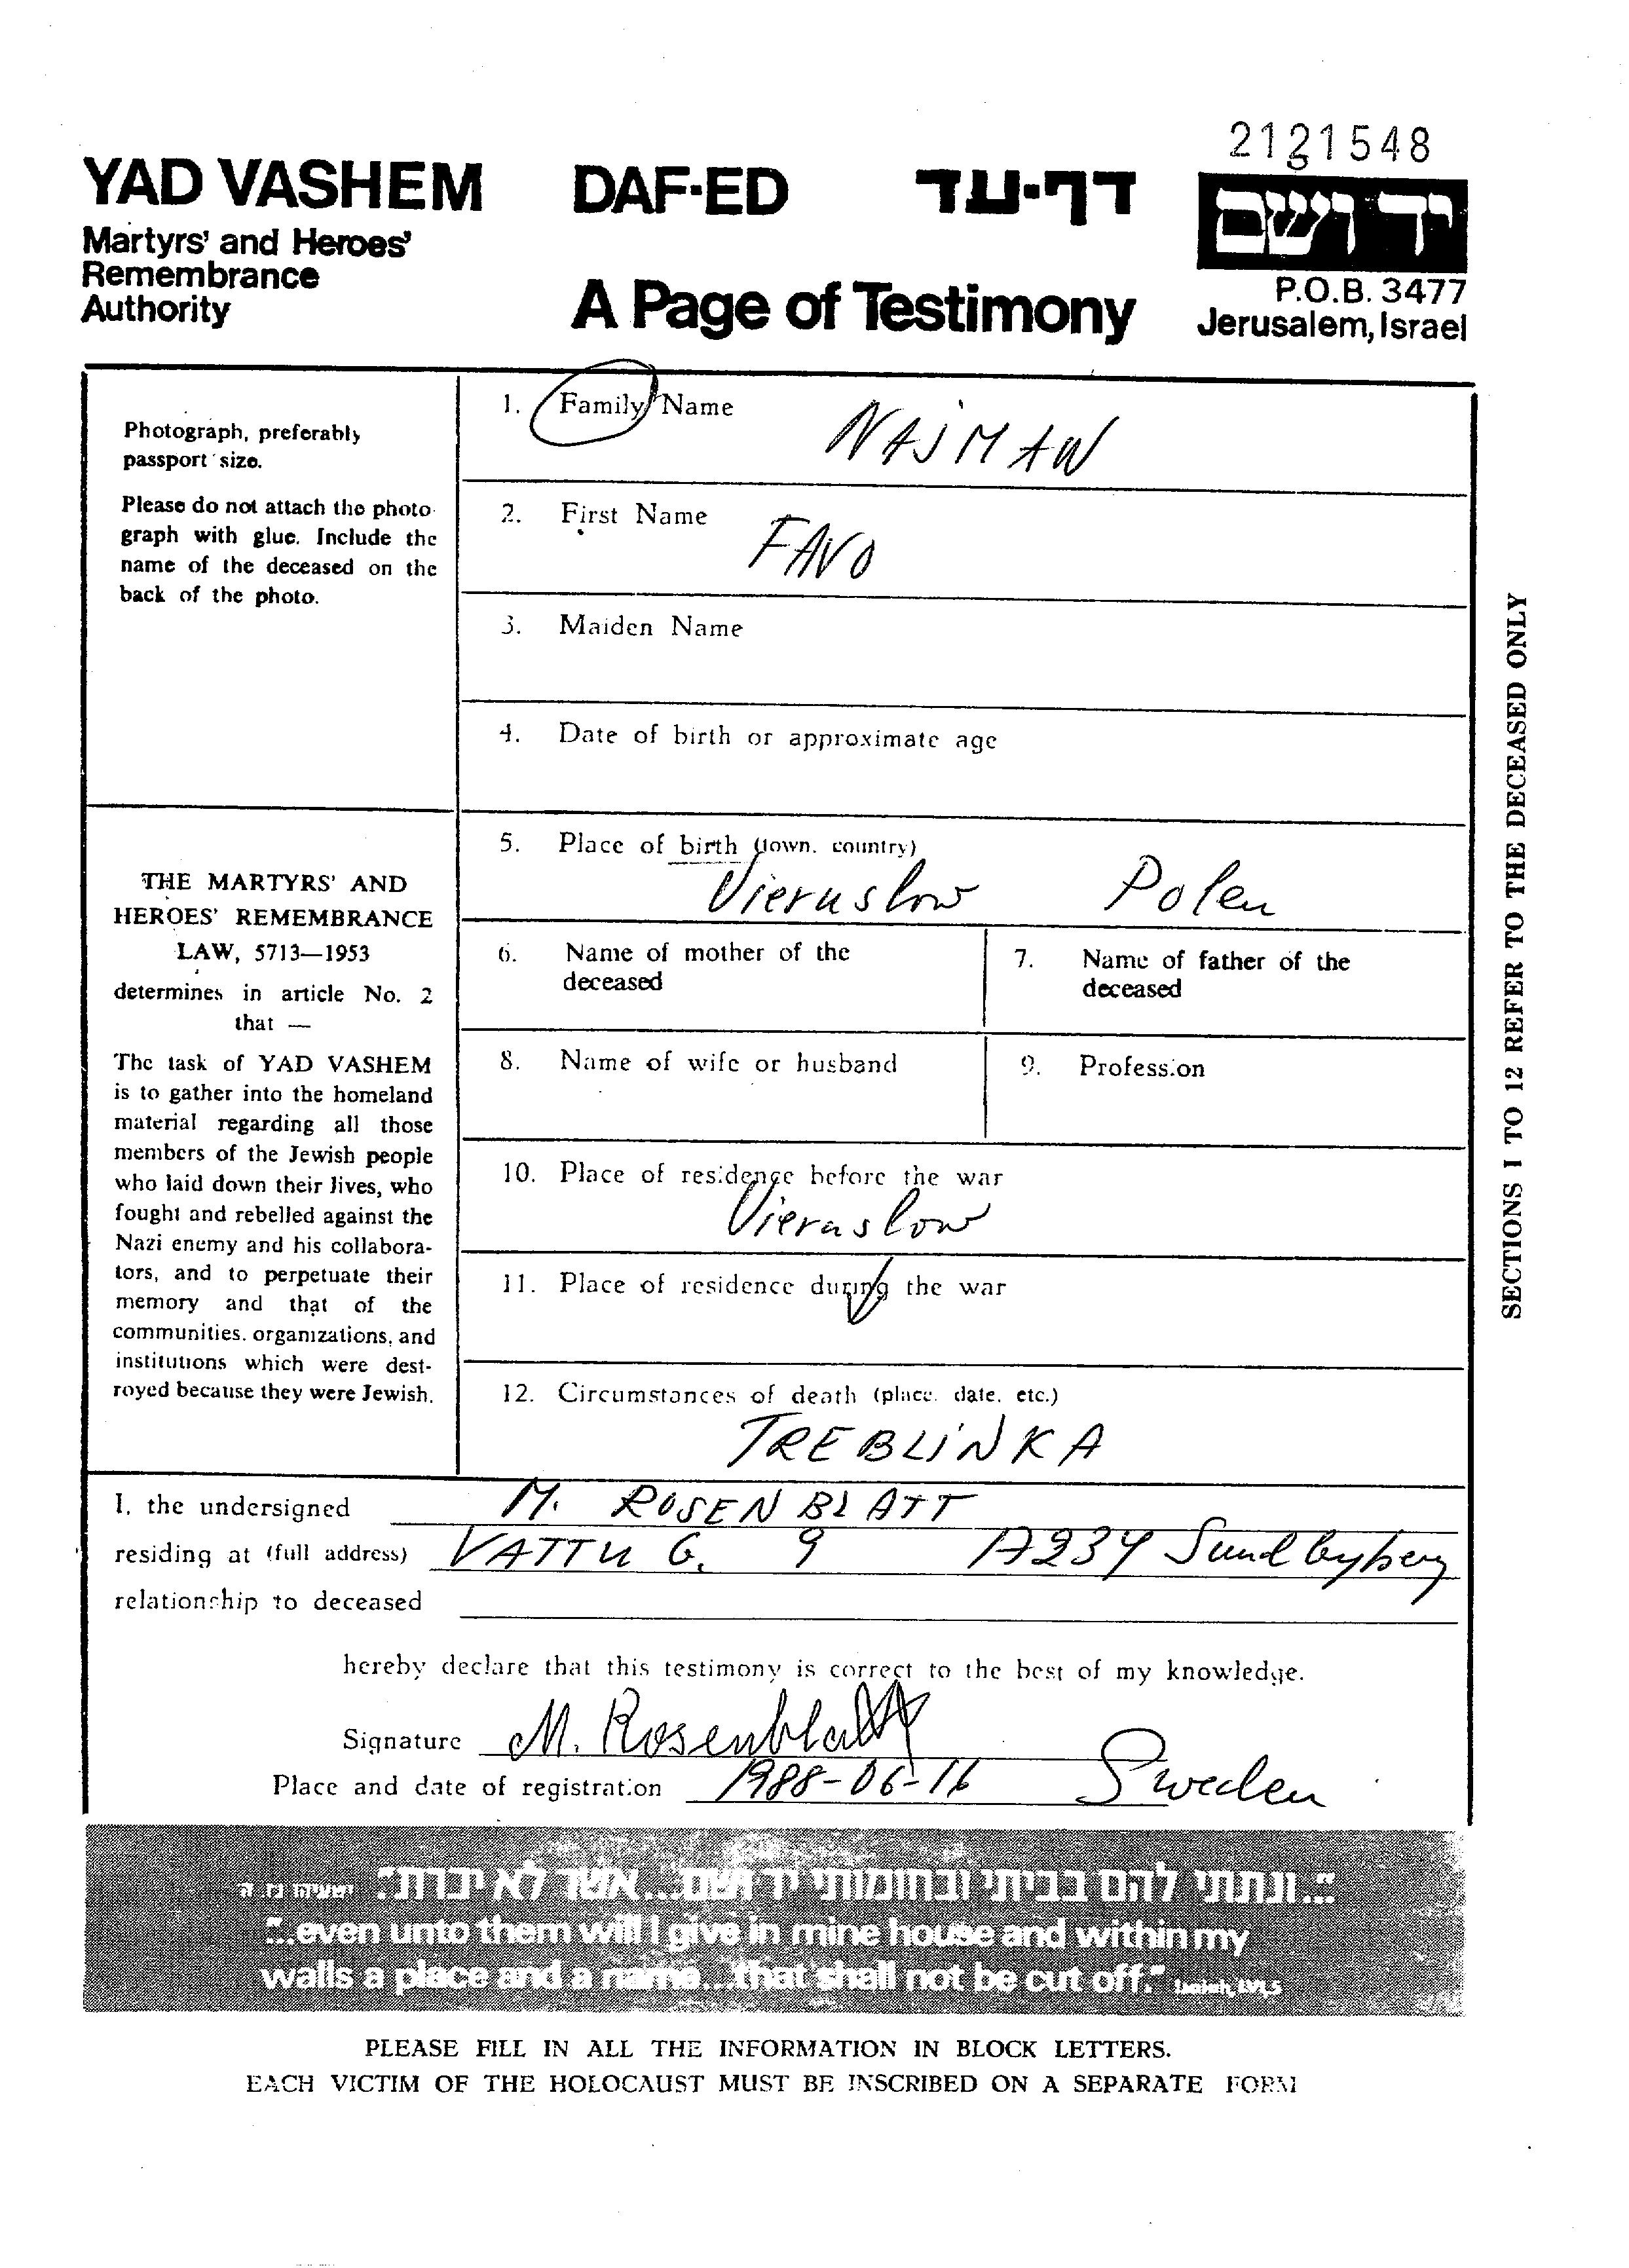 2121548
YAD VASHEM
Martyrs' and Heroes'
Remembrance
Authority
DAF-ED
דף-עד
A Page of Testimony
יד ושם
P.O.B. 3477
Jerusalem, Israel
Photograph, preferably
passport size.
Please do not attach the photo-
graph with glue. Include the
name of the deceased on the
back of the photo.
THE MARTYRS' AND
HEROES' REMEMBRANCE
LAW, 5713—1953
determines in article No. 2
that —
The task of YAD VASHEM
is to gather into the homeland
material regarding all those
members of the Jewish people
who laid down their lives, who
fought and rebelled against the
Nazi enemy and his collabora-
tors, and to perpetuate their
memory and that of the
communities, organizations, and
institutions which were dest-
royed because they were Jewish.
1. Family Name
NAJMAN
2. First Name
3. Maiden Name
4. Date of birth or approximate age
5. Place of birth (town, country)
Vieruslow Polen
6. Name of mother of the
deceased
7. Name of father of the
deceased
8. Name of wife or husband
9. Profession
10. Place of residence before the war
Vieruslow
11. Place of residence during the war
12. Circumstances of death (place, date, etc.)
TREBLINKA
SECTIONS 1 TO 12 REFER TO THE DECEASED ONLY
I, the undersigned M. ROSENBLATT
residing at (full address) VATTU G. 9 17234 Sundbyberg
relationship to deceased
hereby declare that this testimony is correct to the best of my knowledge.
Signature M. Rosenblatt
Place and date of registration 1988-06-16 Sweden
"...ונתתי להם בביתי ובחומותי יד ושם...אשר לא יכרת". ישעיהו נו, ה
"...even unto them will I give in mine house and within my
walls a place and a name...that shall not be cut off." Isaiah, LVI,5
PLEASE FILL IN ALL THE INFORMATION IN BLOCK LETTERS.
EACH VICTIM OF THE HOLOCAUST MUST BE INSCRIBED ON A SEPARATE FORM